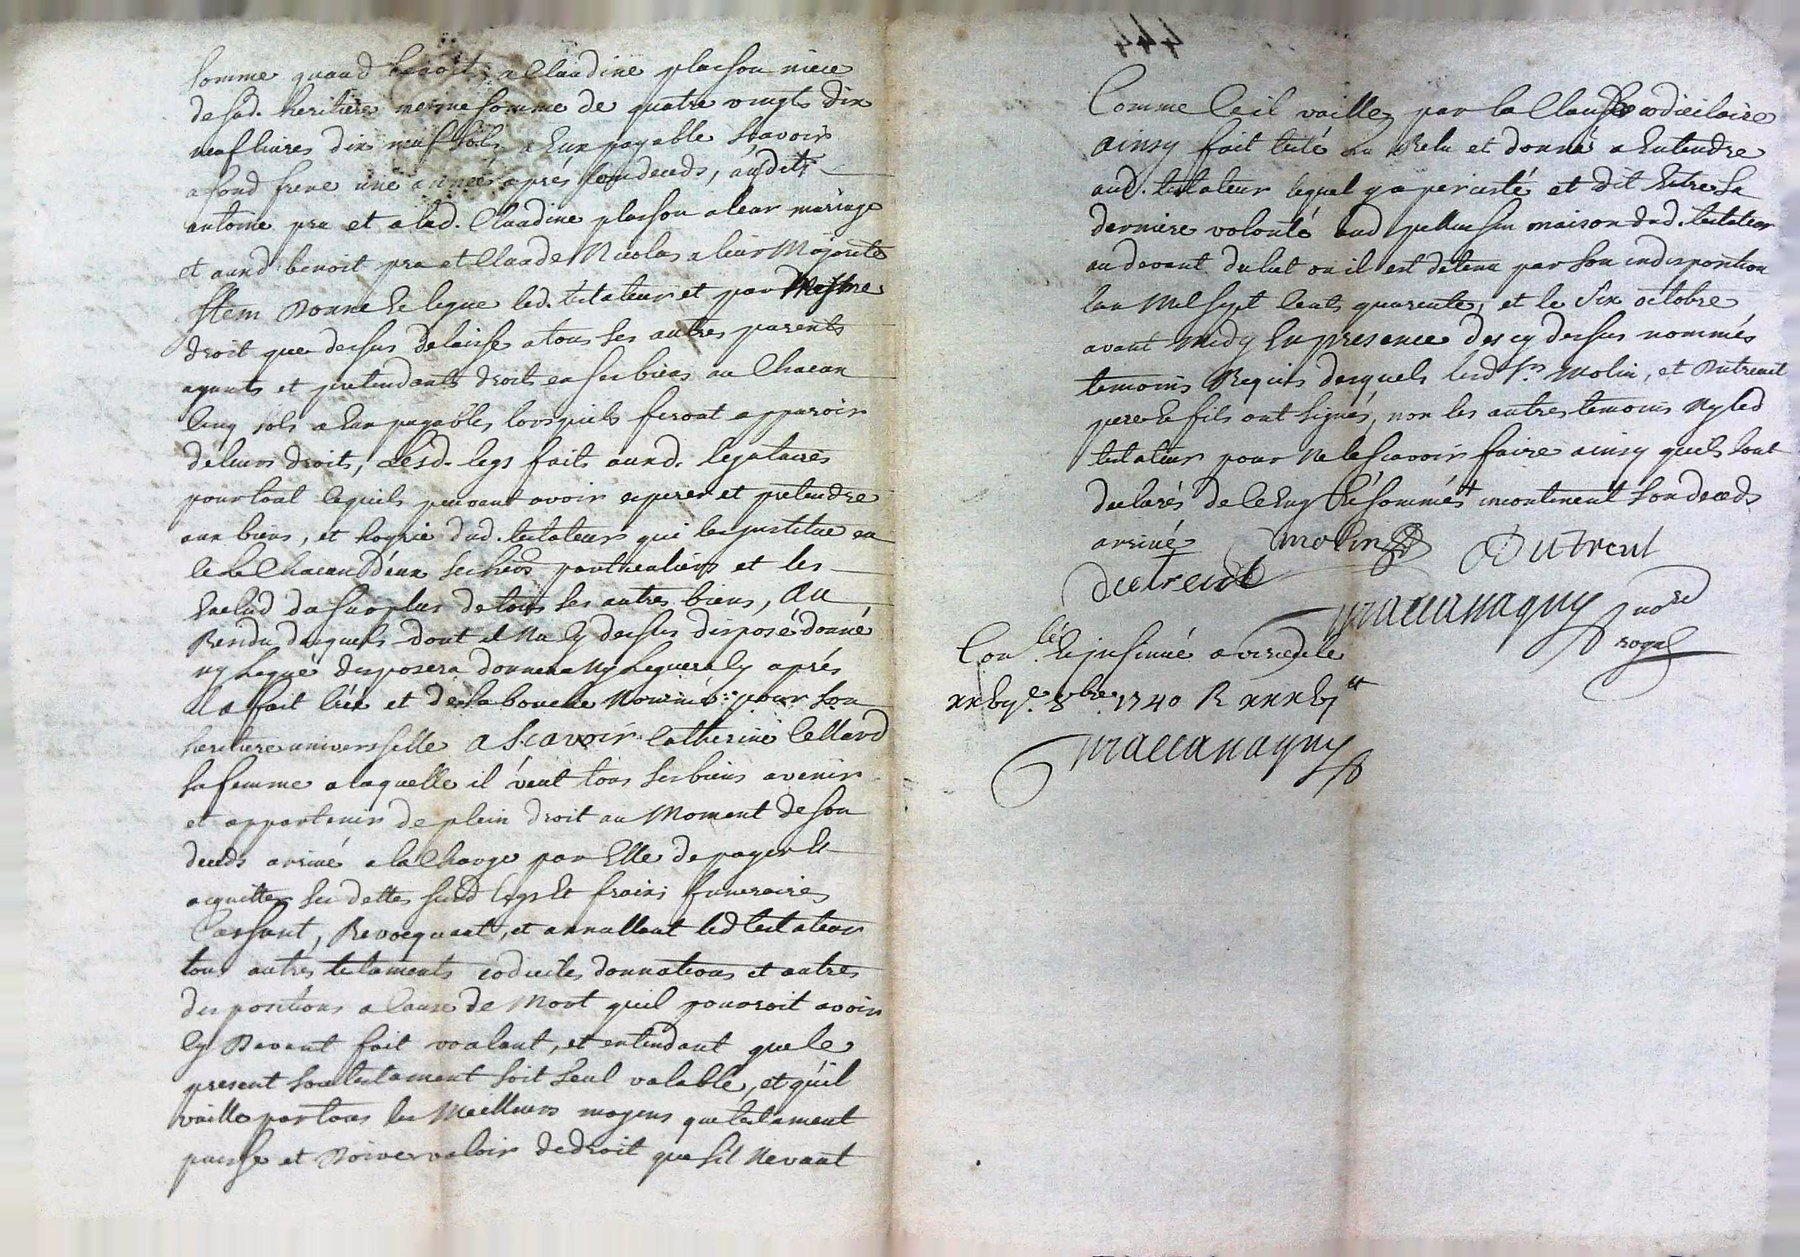 somme quaud benoist, a Claudine plasson niece
de sad. heritiere mesme somme de quatre vingts dix
neuf livres dix neuf sols, a Eux payable scavoir
a sond frere une année aprés son deceds, audits
antoine pra et a lad. Claudine plasson a leur mariage
et aund benoit pra et Claude Nicolas a leur Majorité
Item Donne Et legue led. testateur et par Mesme
droit que dessus delaisse a tous ses autres parents
ayants et pretendants droits en ses biens au Chacun
Cinq sols a Eux payables lorsquils feront apparoir
de leurs droits, Lesd. legs faits auxd. legataires
pour tout lequels peuvent avoir esperer et pretendre
aux biens, et hoyrie dud. testateur qui les institue en
ce le Chacun Deux ses heres particuliers et les
Exclud du surplus de tous ses autres biens, Au
Residu desquels dont il Na Cy dessus disposé donné
ny legué disposera donnera Ny leguera Cy aprés
il a fait créé et de sa bouche Nommé pour son
heritiere universselle a Scavoir Catherine Cellard
sa femme a laquelle il veut tous ses biens avenir
et appartenir de plein droit au Moment de son
deceds arrivé a la Charge par Elle de payer Et
acquitter ses dettes susd legs Et frais funeraires
Cassant, Revocquant, et annullant led testateur
tous autres testaments codiciles donnations et autres
dispositions a Cause de Mort quil pourroit avoir
Cy Devant fait voulant, et entendant que le
present son testament soit seul valable, et quil
vaille par tous les Meilleurs moyens que testament
puisse et Doive valoir de droit que sil Ne vaut
444
Comme Ce il vaille par la Clause codicilaire
ainsy fait testé Lu Relu et donné a Entendre
aud. testateur lequel y a percisté et dit Estre sa
derniere volonté aud pellussin maison dud. testateur
au devant du lict ou il est detenu par son indisposition
lan Mil sept Cents quarente, et le Six octobre
avant Midy En presence des cy dessus nommés
temoins Requis desquels lesd. srs Molin, et Dutreuit
pere Et fils ont signés, non les autres temoins Ny led
testateur pour Ne le scavoir faire ainsy quils lont
declarés de ce Enq. Et sommés incontinent son deceds
arrivé
molin Dutreul
dutreul
maccanagny nore
royal
Conlé. Et insinué a virieu le
xxbije. 8bre. 1740 R xxxbjtt
maccanagny